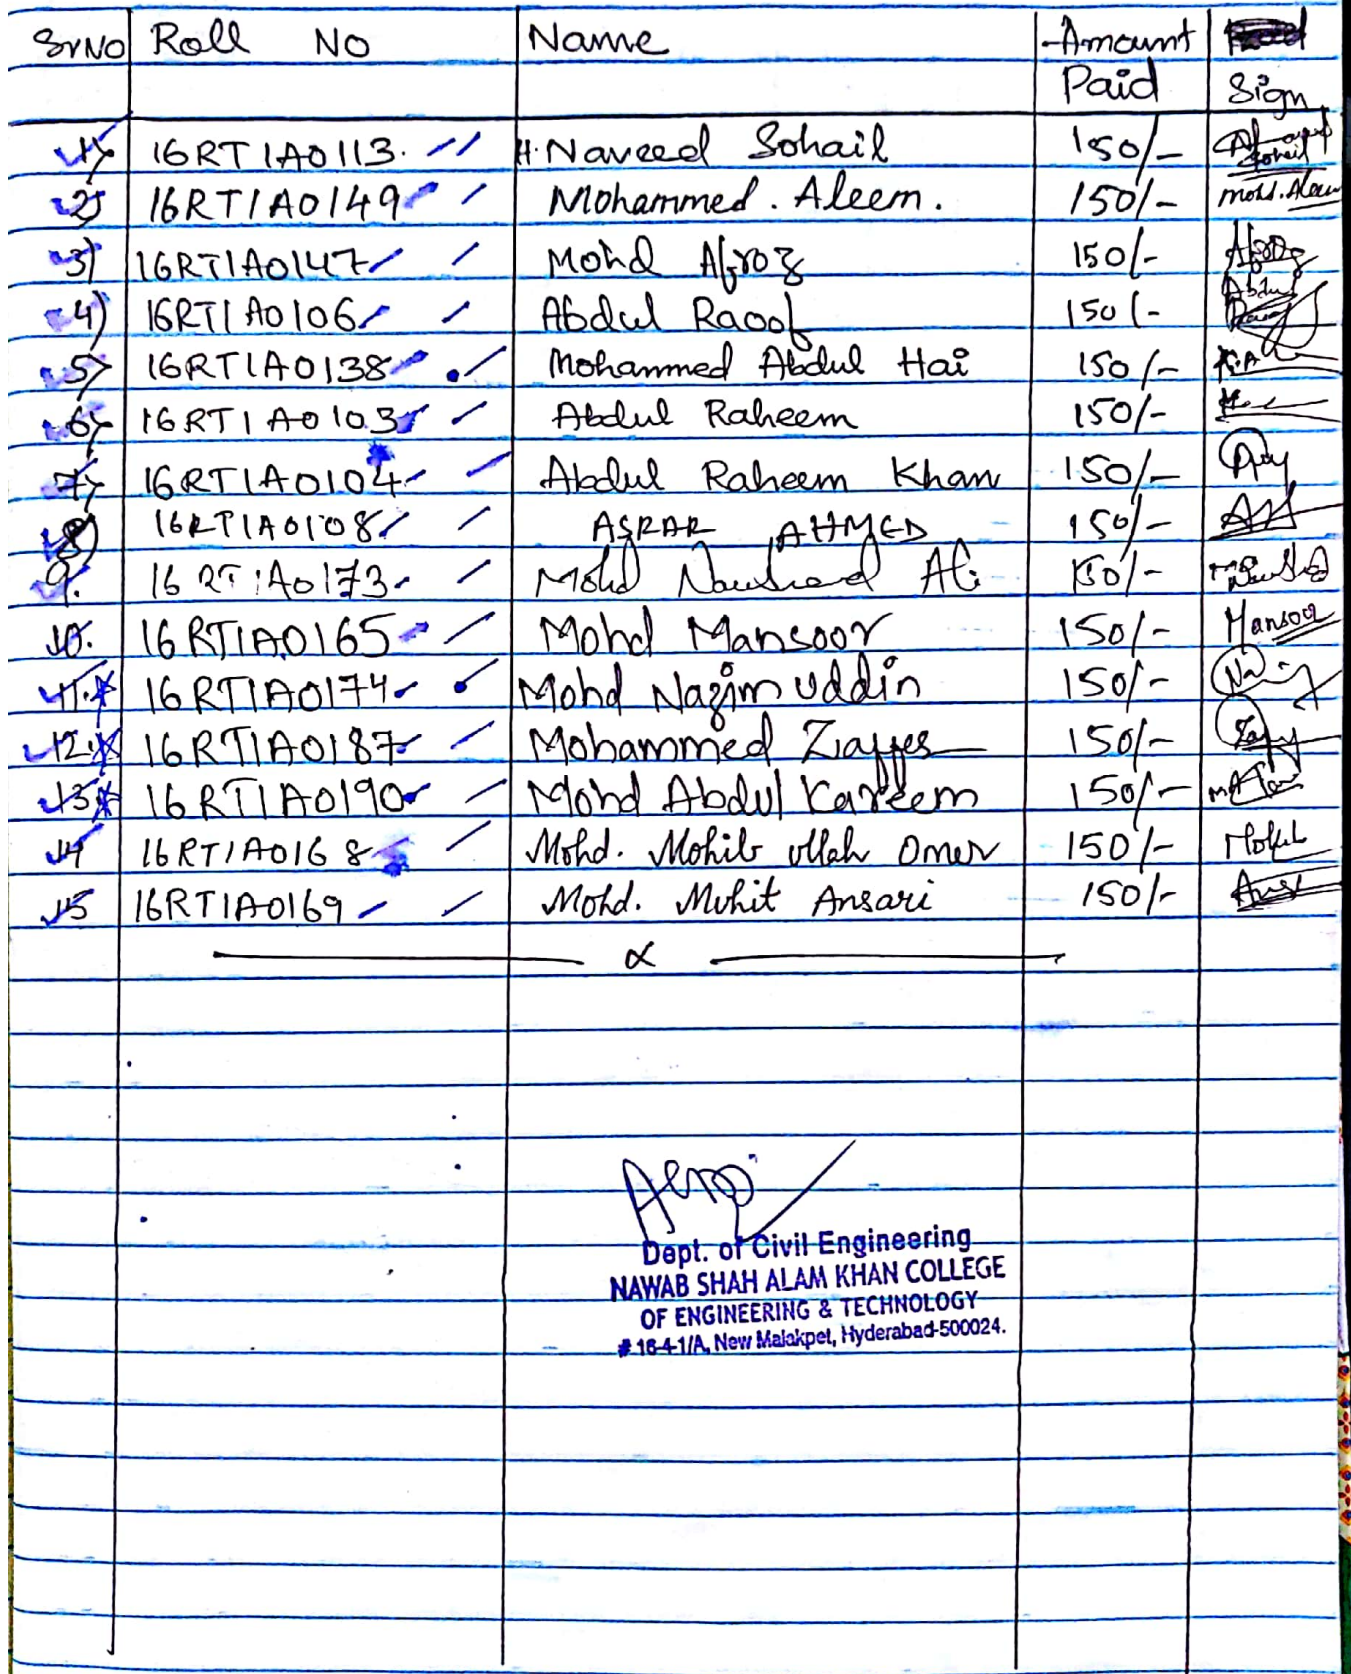 Sr No Roll No Name Amount Paid Sign
1) 16RT1A0113. H. Naveed Sohail 150/- Sohail
2) 16RT1A0149 Mohammed. Aleem. 150/- Mohd. Aleem
3) 16RT1A0147 Mohd Afroz 150/- Afroz
4) 16RT1A0106 Abdul Raoof 150/- Abdul
5) 16RT1A0138 Mohammed Abdul Hai 150/-
6) 16RT1A0103 Abdul Raheem 150/-
7) 16RT1A0104 Abdul Raheem Khan 150/-
8) 16RT1A0108 ASRAR AHMED 150/-
9. 16RT1A0173 Mohd Naushad Ali 150/-
10. 16RT1A0165 Mohd Mansoor 150/- Mansoor
11. 16RT1A0174 Mohd Nazim uddin 150/-
12. 16RT1A0187 Mohammed 150/-
13 16RT1A0190 Mohd Abdul Kareem 150/-
14 16RT1A0168 Mohd. Mohib ullah Omer 150/-
15 16RT1A0169 Mohd. Muhit Ansari 150/-
Dept. of Civil Engineering
NAWAB SHAH ALAM KHAN COLLEGE
OF ENGINEERING & TECHNOLOGY
# 16-4-1/A, New Malakpet, Hyderabad-500024.